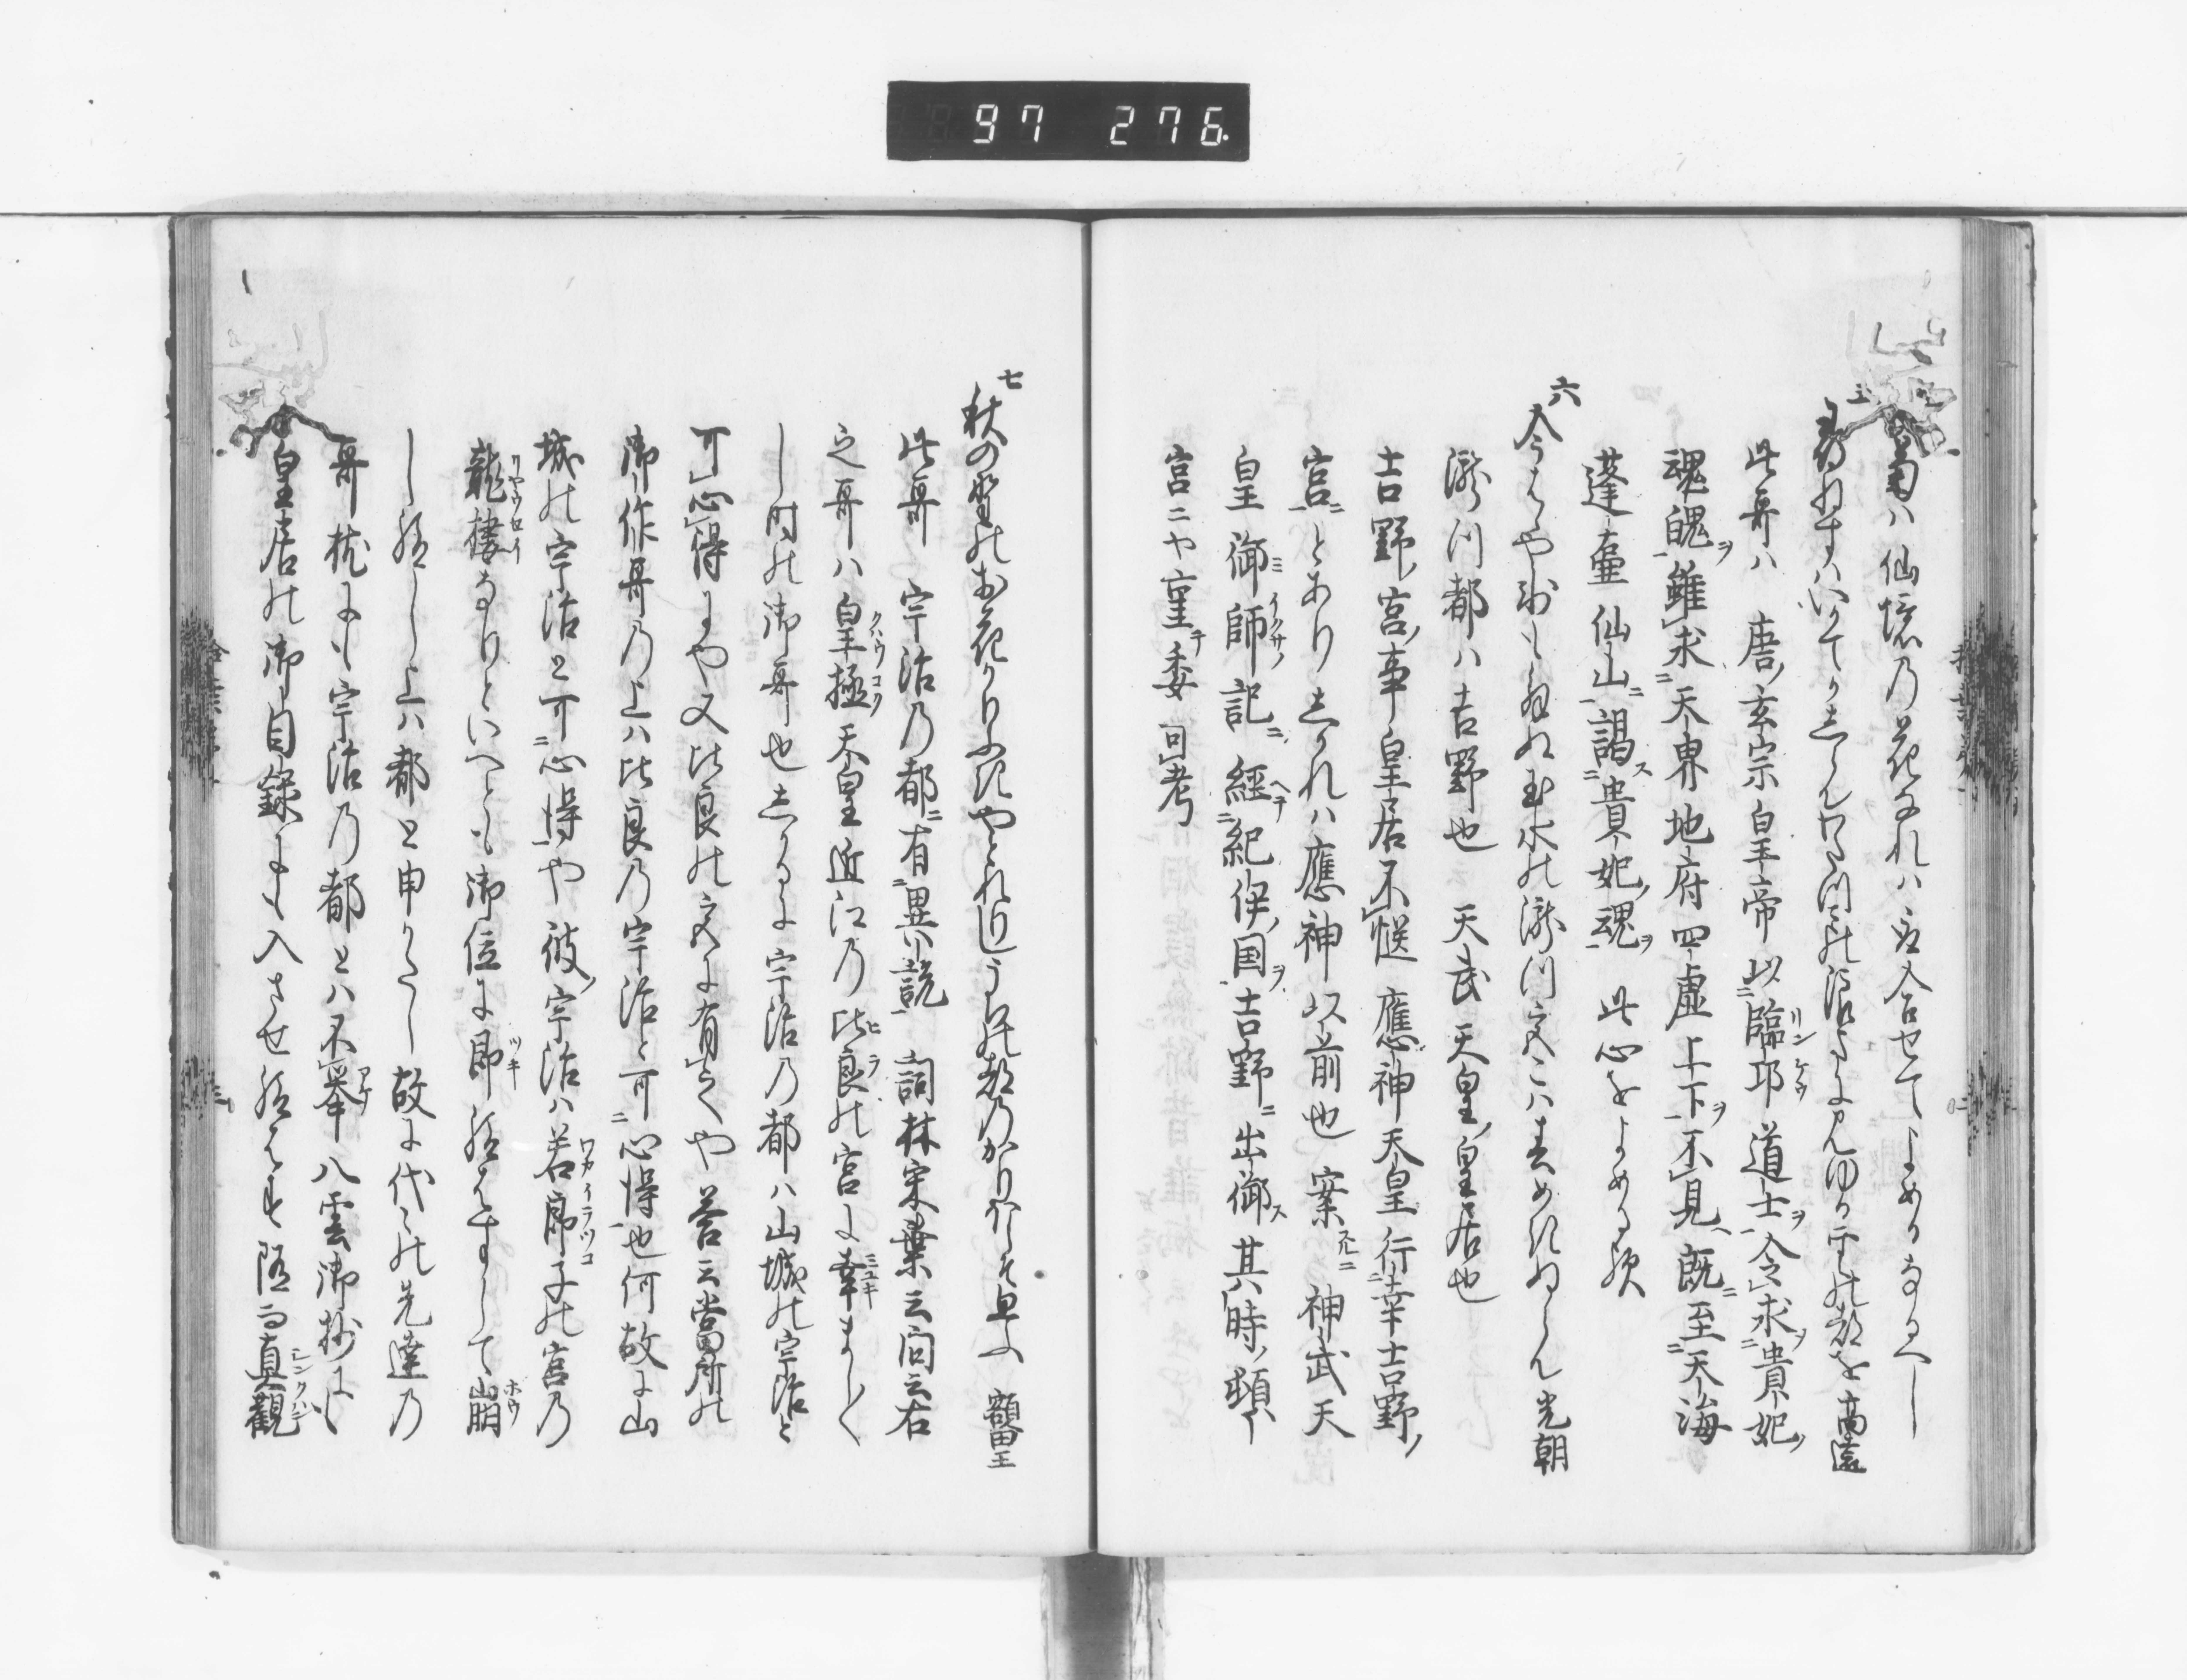 97 276.
菊ハ仙境乃花なれハ云合せてよめるなるへし
五
尋ねすハいかてかしらんわたつ海の浪まにみゆる雲の都を 高遠
此哥ハ 唐ノ玄宗皇帝以臨邛道士ヲ令求貴妃ノ
魂魄ヲ雖求天界地府四虚上下ヲ不見既ニ至天海
蓬壷仙山ニ謁ス貴妃ノ魂ヲ 此心をよめる歟
六
今はや 玉水の瀧川 光朝
瀧川都ハ吉野也 天武天皇ノ皇居也
吉野ノ宮ノ事 皇居不慥 應神天皇行幸吉野ノ
宮ニとあり しかれハ應神以前也 案スルニ神武天
皇御師記ニ經紀伊ノ国ヲ吉野ニ出御ス其時ノ頓
宮ニや重テ委可考
七
秋の野のお花かりふきやとれりしうちの都のかりほしそ思ふ 額田王
此哥 宇治乃都ニ有異説 詞林采葉云問云右
之哥ハ皇極天皇近江乃比良の宮に幸ましく
し時の御哥也しかるに宇治乃都ハ山城の宇治と
可心得にや又比良の交に有之や 答云當所の
御作哥乃上ハ比良乃宇治と可心得也何故に山
城の宇治と可心得や彼ノ宇治ハ若郎子の宮乃
龍樓なりといへとも御位に即給はすして崩
し給し上ハ都と申かたし故に代々の先達乃
哥枕にも宇治乃都とハ不擧八雲御抄に
皇居の御目録にも入させ給はす 隨而真觀